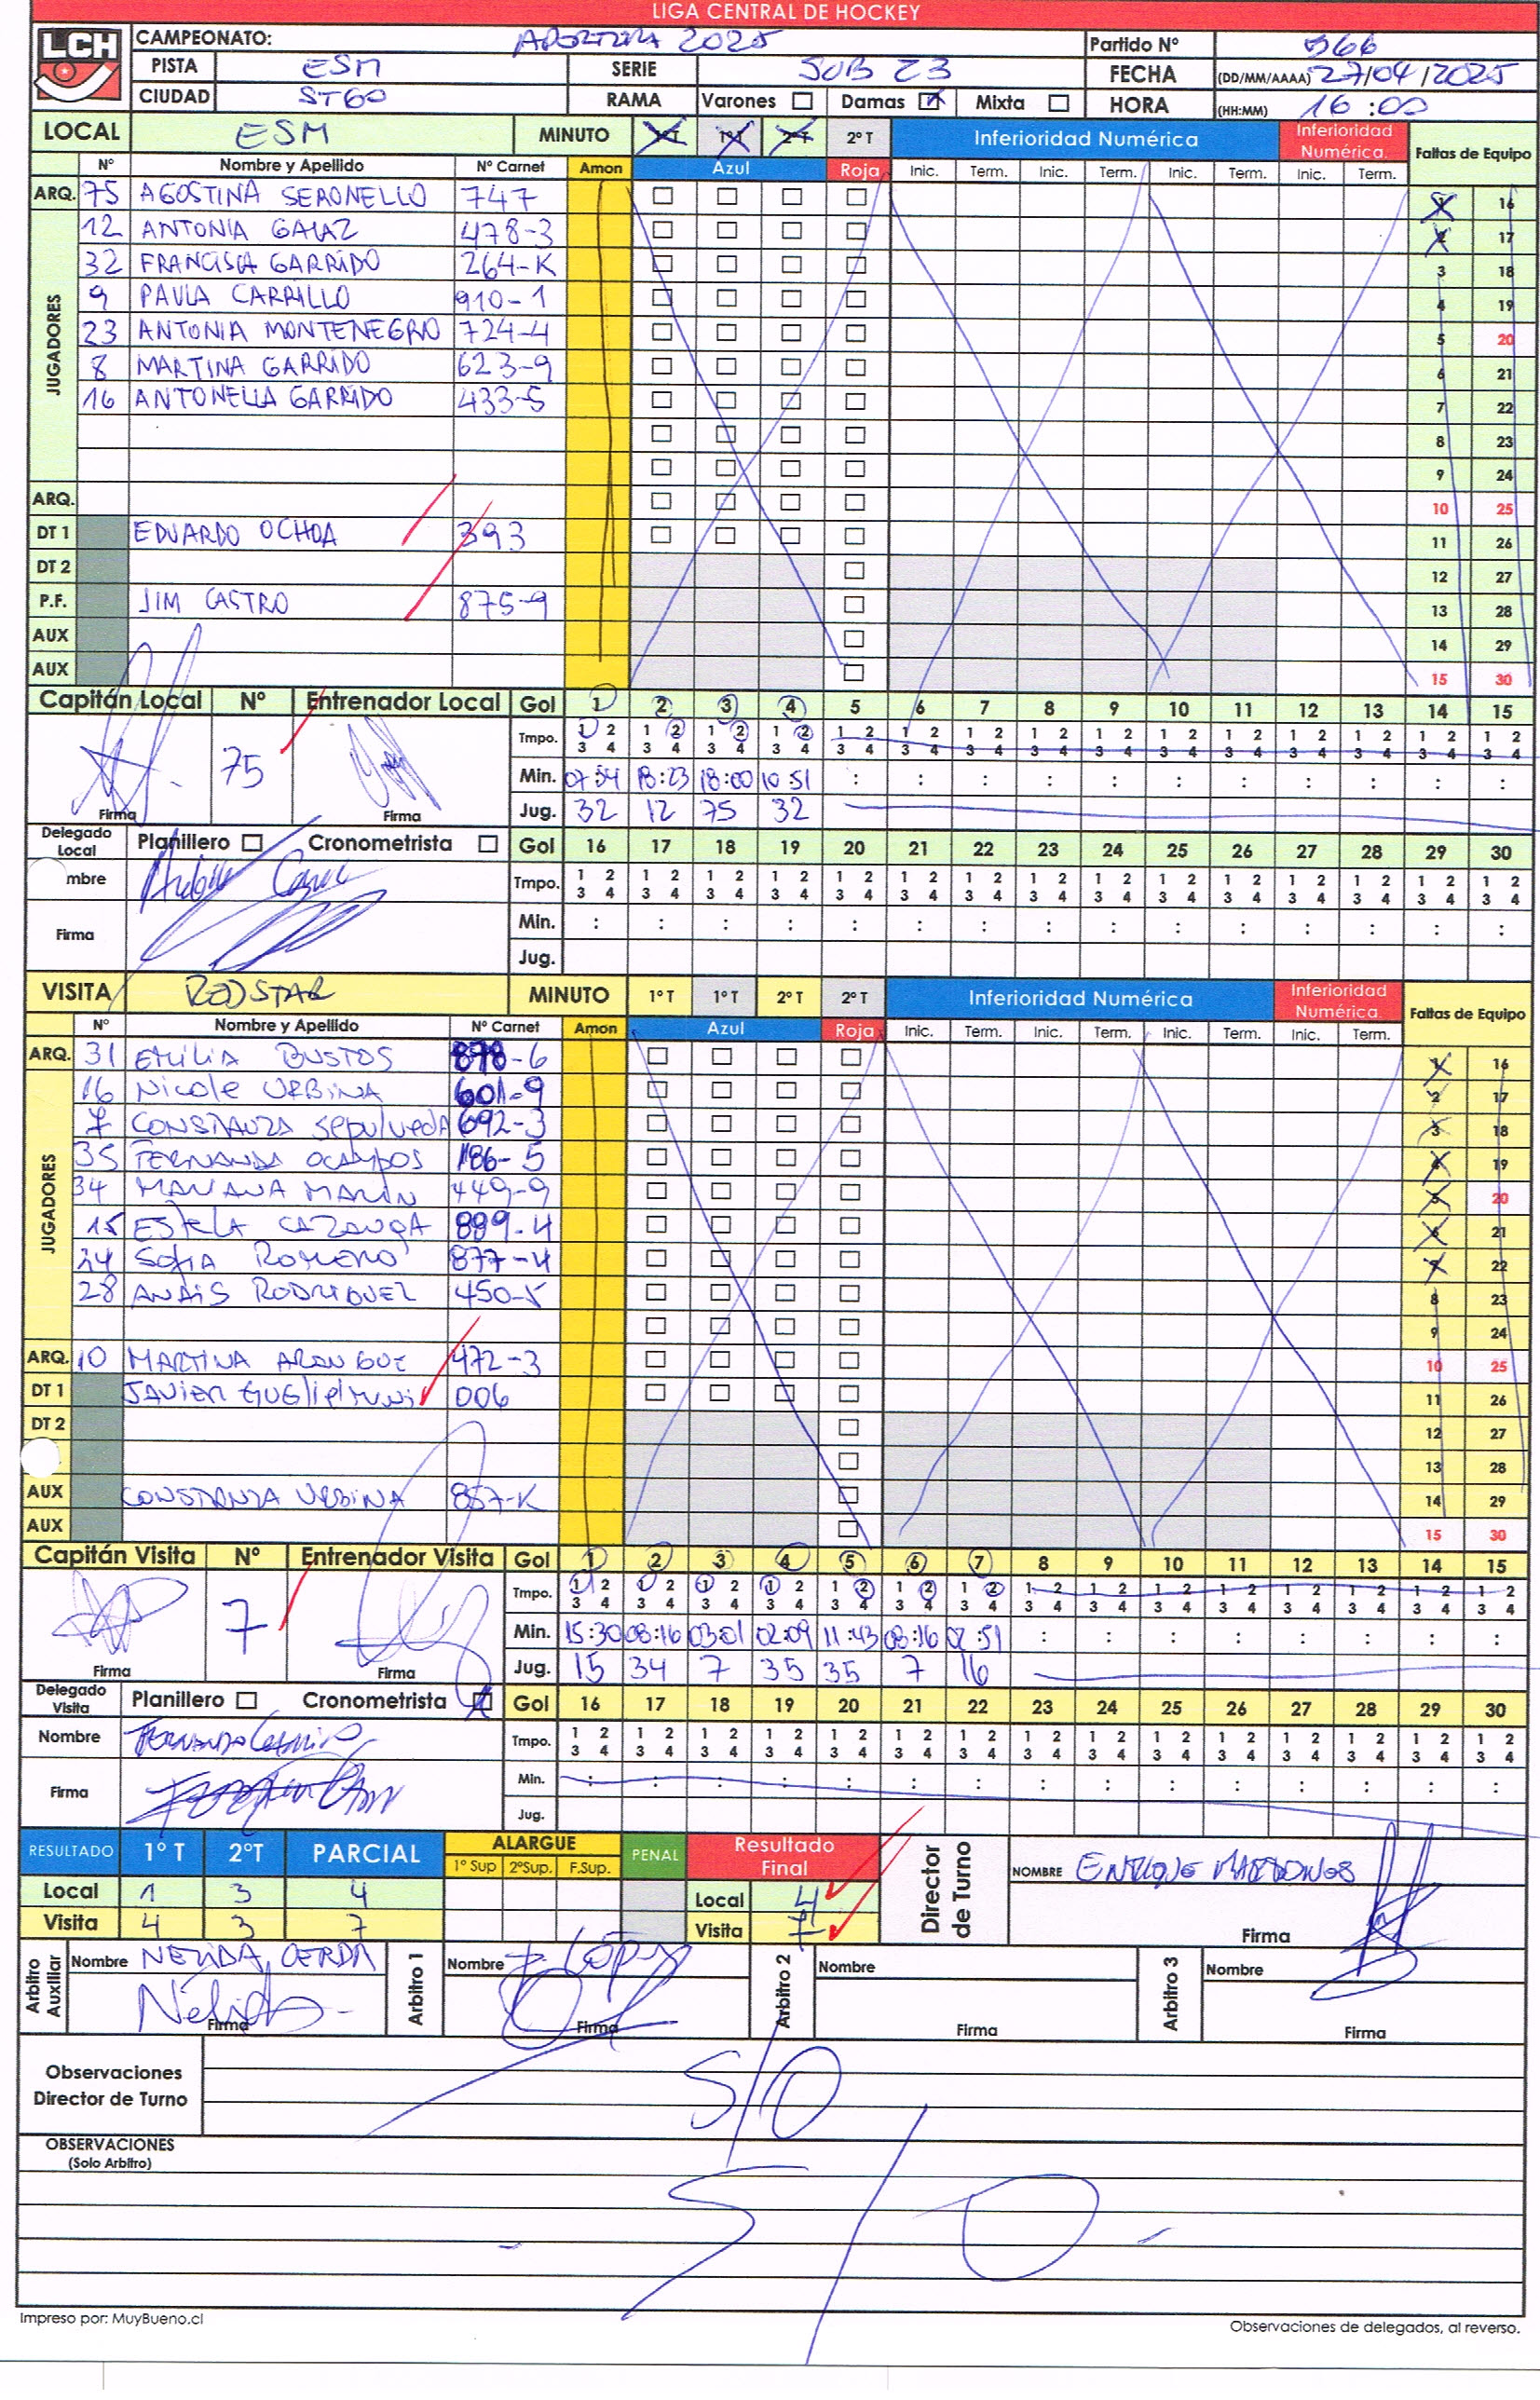 LIGA CENTRAL DE HOCKEY
LCH
CAMPEONATO: APERTURA 2025 Partido Nº 566
PISTA ESM SERIE SUB 23 FECHA (DD/MM/AAAA) 27/04/2025
CIUDAD STGO RAMA Varones Damas Mixta HORA (HH:MM) 16:00
LOCAL ESM MINUTO 1º T 1º T 2º T 2º T Inferioridad Numérica Inferioridad Numérica Faltas de Equipo
Nº Nombre y Apellido Nº Carnet Amon Azul Roja Inic. Term. Inic. Term. Inic. Term. Inic. Term.
ARQ. 75 AGOSTINA SERONELLO 747 1 16
JUGADORES
12 ANTONIA GALAZ 478-3 2 17
32 FRANCISCA GARRIDO 264-K 3 18
9 PAULA CARRILLO 910-1 4 19
23 ANTONIA MONTENEGRO 724-4 5 20
8 MARTINA GARRIDO 623-9 6 21
16 ANTONELLA GARRIDO 433-5 7 22
8 23
9 24
ARQ. 10 25
DT 1 EDUARDO OCHOA 393 11 26
DT 2 12 27
P.F. JIM CASTRO 875-9 13 28
AUX 14 29
AUX 15 30
Capitán Local Nº Entrenador Local Gol 1 2 3 4 5 6 7 8 9 10 11 12 13 14 15
Tmpo. 1 2 1 2 1 2 1 2 1 2 1 2 1 2 1 2 1 2 1 2 1 2 1 2 1 2 1 2 1 2
3 4 3 4 3 4 3 4 3 4 3 4 3 4 3 4 3 4 3 4 3 4 3 4 3 4 3 4 3 4
75 Min. 07:54 18:23 18:00 10:51 : : : : : : : : : : :
Firma Firma Jug. 32 12 75 32
Delegado Local Planillero Cronometrista Gol 16 17 18 19 20 21 22 23 24 25 26 27 28 29 30
mbre Tmpo. 1 2 1 2 1 2 1 2 1 2 1 2 1 2 1 2 1 2 1 2 1 2 1 2 1 2 1 2 1 2
3 4 3 4 3 4 3 4 3 4 3 4 3 4 3 4 3 4 3 4 3 4 3 4 3 4 3 4 3 4
Firma Min. : : : : : : : : : : : : : : :
Jug.
VISITA REDSTAR MINUTO 1º T 1º T 2º T 2º T Inferioridad Numérica Inferioridad Numérica Faltas de Equipo
Nº Nombre y Apellido Nº Carnet Amon Azul Roja Inic. Term. Inic. Term. Inic. Term. Inic. Term.
ARQ. 31 EMILIA BUSTOS 878-6 1 16
JUGADORES
16 Nicole URBINA 601-9 2 17
7 CONSTANZA Sepulveda 692-3 3 18
35 FERNANDA OCAMPOS 186-5 4 19
34 MARIANA MARIN 449-9 5 20
15 ESTELA 899-4 6 21
24 SOFIA ROMERO 877-4 7 22
28 ANAIS RODRIGUEZ 450-K 8 23
9 24
ARQ. 10 MARTINA ARANGUE 472-3 10 25
DT 1 JAVIER Guglielmuni 006 11 26
DT 2 12 27
13 28
AUX CONSTANZA URBINA 857-K 14 29
AUX 15 30
Capitán Visita Nº Entrenador Visita Gol 1 2 3 4 5 6 7 8 9 10 11 12 13 14 15
Tmpo. 1 2 1 2 1 2 1 2 1 2 1 2 1 2 1 2 1 2 1 2 1 2 1 2 1 2 1 2 1 2
3 4 3 4 3 4 3 4 3 4 3 4 3 4 3 4 3 4 3 4 3 4 3 4 3 4 3 4 3 4
7 Min. 15:30 08:16 03:01 02:09 11:43 08:16 02:51 : : : : : : : :
Firma Firma Jug. 15 34 7 35 35 7 16
Delegado Visita Planillero Cronometrista Gol 16 17 18 19 20 21 22 23 24 25 26 27 28 29 30
Nombre Tmpo. 1 2 1 2 1 2 1 2 1 2 1 2 1 2 1 2 1 2 1 2 1 2 1 2 1 2 1 2 1 2
3 4 3 4 3 4 3 4 3 4 3 4 3 4 3 4 3 4 3 4 3 4 3 4 3 4 3 4 3 4
Firma Min. : : : : : : : : : : : : : : :
Jug.
RESULTADO 1º T 2ºT PARCIAL ALARGUE 1º Sup 2ºSup. F.Sup. PENAL Resultado Final Director de Turno NOMBRE ENRIQUE MARDONES
Local 1 3 4 Local 4
Visita 4 3 7 Visita 7 Firma
Arbitro Auxiliar Nombre NELIDA CERDA Arbitro 1 Nombre F. López Arbitro 2 Nombre Arbitro 3 Nombre
Firma Firma Firma Firma
Observaciones Director de Turno S/O
OBSERVACIONES
(Solo Arbitro)
S/O
Impreso por: MuyBueno.cl Observaciones de delegados, al reverso.